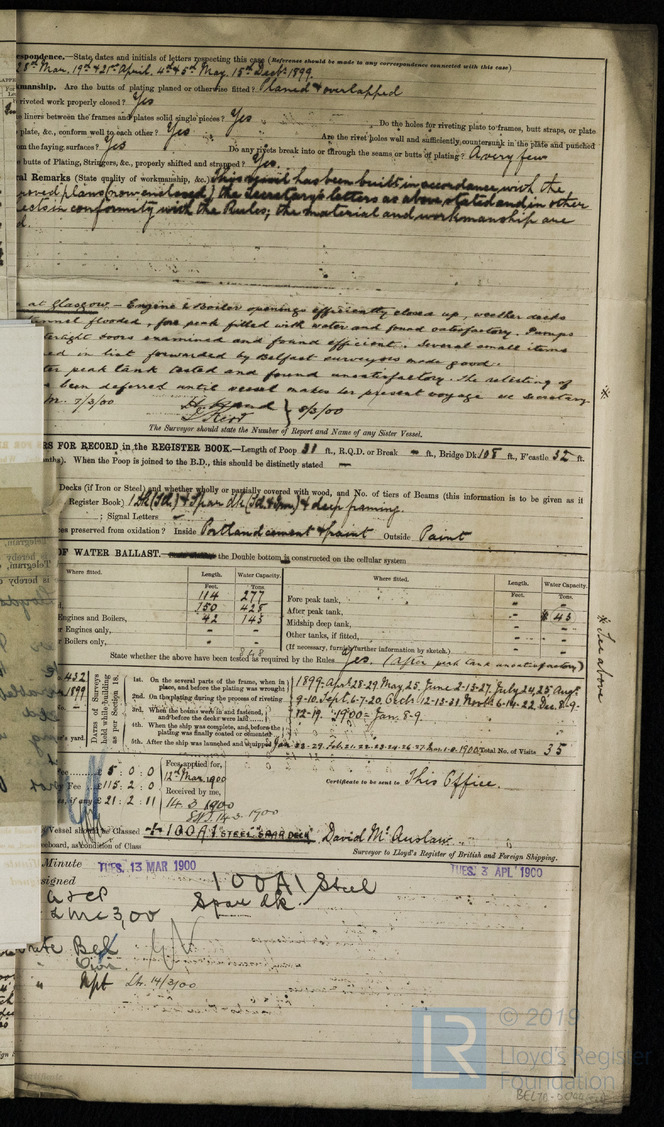 spondence.—State dates and initials of letters respecting this case (Reference should be made to any correspondence connected with this case)
8th Mar. 19th & 21st April. 4th & 5th May. 15th Decbr 1899.
kmanship. Are the butts of plating planed or otherwise fitted? Planed & overlapped
riveted work properly closed? Yes
e liners between the frames and plates solid single pieces? Yes Do the holes for riveting plate to frames, butt straps, or plate
plate, &c., conform well to each other? Yes Are the rivet holes well and sufficiently countersunk in the plate and punched
om the faying surfaces? Yes Do any rivets break into or through the seams or butts of plating? A very few
butts of Plating, Stringers, &c., properly shifted and strapped? Yes
ral Remarks (State quality of workmanship, &c.) This vessel has been built in accordance with the
roved plans (now enclosed) the Secretary's letters as above stated and in other
ects in conformity with the Rules; the material and workmanship are
d.
at Glasgow — Engine & Boiler openings efficiently closed up, weather decks
tunnel flooded, fore peak filled with water and found satisfactory. Pumps
tertight doors examined and found efficient. Several small items
ed in list forwarded by Belfast surveyors made good.
ter peak tank tested and found unsatisfactory. The retesting of
s been deferred until vessel makes her present voyage
7/3/00
8/3/00
The Surveyor should state the Number of Report and Name of any Sister Vessel.
RS FOR RECORD in the REGISTER BOOK.—Length of Poop 31 ft., R.Q.D. or Break — ft., Bridge Dk 108 ft., F'castle 32 ft.
When the Poop is joined to the B.D., this should be distinctly stated —
Decks (if Iron or Steel) and whether wholly or partially covered with wood, and No. of tiers of Beams (this information is to be given as it
Register Book) 1 Dk (Stl) & Spar dk & deep framing.
; Signal Letters —
es preserved from oxidation? Inside Portland cement & paint Outside Paint
OF WATER BALLAST. the Double bottom is constructed on the cellular system
Where fitted. Length. Water Capacity. Where fitted. Length. Water Capacity.
Feet. Tons. Feet. Tons.
114 277 Fore peak tank, — —
150 425 After peak tank, — 45
Engines and Boilers, 42 143 Midship deep tank, — —
er Engines only, — — Other tanks, if fitted, — —
r Boilers only, — — (If necessary, furnish further information by sketch.)
848
State whether the above have been tested as required by the Rules Yes. (After peak tank unsatisfactory)
* See above
432
1899
DATES of Surveys held while building as per Section 18.
1st. On the several parts of the frame, when in place, and before the plating was wrought
2nd. On the plating during the process of riveting
3rd. When the beams were in and fastened, and before the decks were laid
4th. When the ship was complete, and before the plating was finally coated or cemented
5th. After the ship was launched and equipped
1899. April 28-29 May 25, June 2-13-27, July 24, 25, Aug
9-10, Sept 6-7-20, Octr 12-13-31, Novr 6-14-22, Dec 8-9-
12-19. 1900 = Jan. 8-9.
Total No. of Visits 35
r's yard.
Fee £5 : 0 : 0
Fee £115 : 2 : 0
s, if any £21 : 2 : 11
Fees applied for,
12th Mar. 1900
Received by me,
14. 3. 1900
14.3.1900
Certificate to be sent to This Office.
Vessel should be Classed 100A1 STEEL SPAR DECK
eeboard, as condition of Class
David McAuslan
Surveyor to Lloyd's Register of British and Foreign Shipping.
Minute TUES. 13 MAR 1900 TUES. 3 APL 1900
signed 100A1 Steel
Spar dk.
& LMC 3,00
Bel
Lr. 14/3/00
LR
© 2019
Lloyd's Register
Foundation